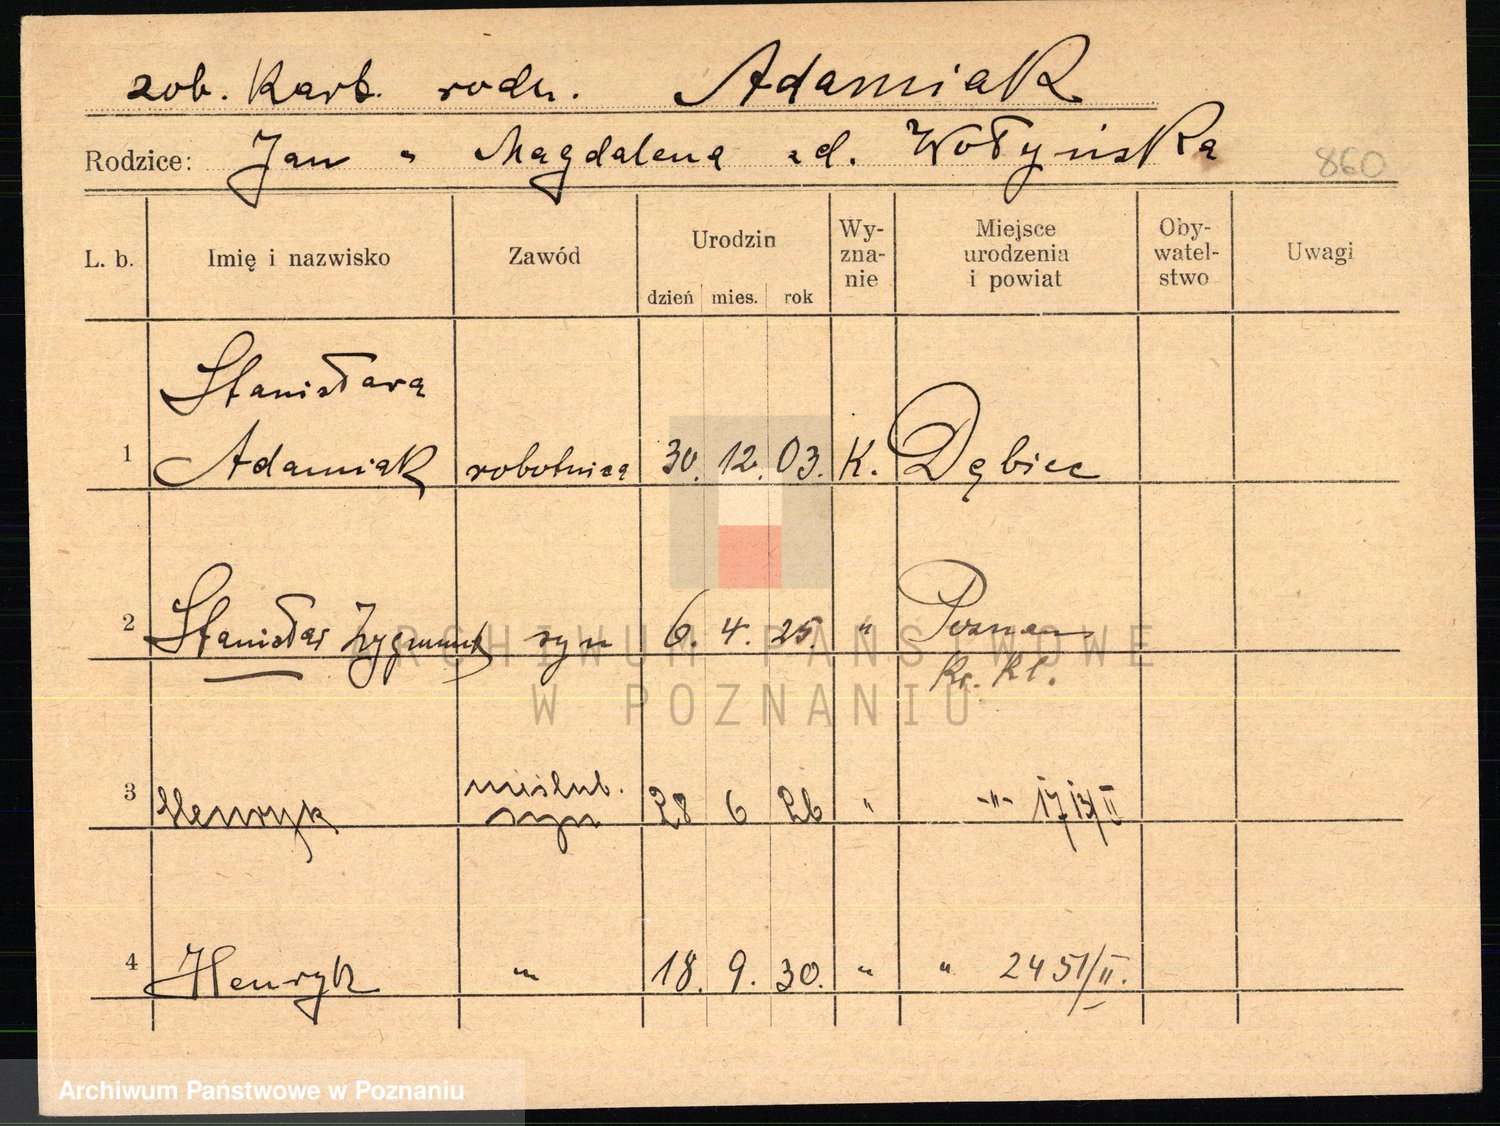 zob. Kart. rodz. Adamiak
Rodzice: Jan " Magdalena zd. Wołyńska 860
L. b. Imię i nazwisko Zawód Urodzin dzień mies. rok Wy-zna-nie Miejsce urodzenia i powiat Oby-watel-stwo Uwagi
Stanisława
1 Adamiak robotnica 30. 12. 03. K. Dębiec
2 Stanisław Zygmunt syn 6. 4. 25. " Poznań
Kr. Kl.
nieślub.
3 Henryk syn 28 6 26 " -"- II
4 Henryk " 18. 9. 30. " " 2451/II.
ARCHIWUM PAŃSTWOWE
W POZNANIU
Archiwum Państwowe w Poznaniu